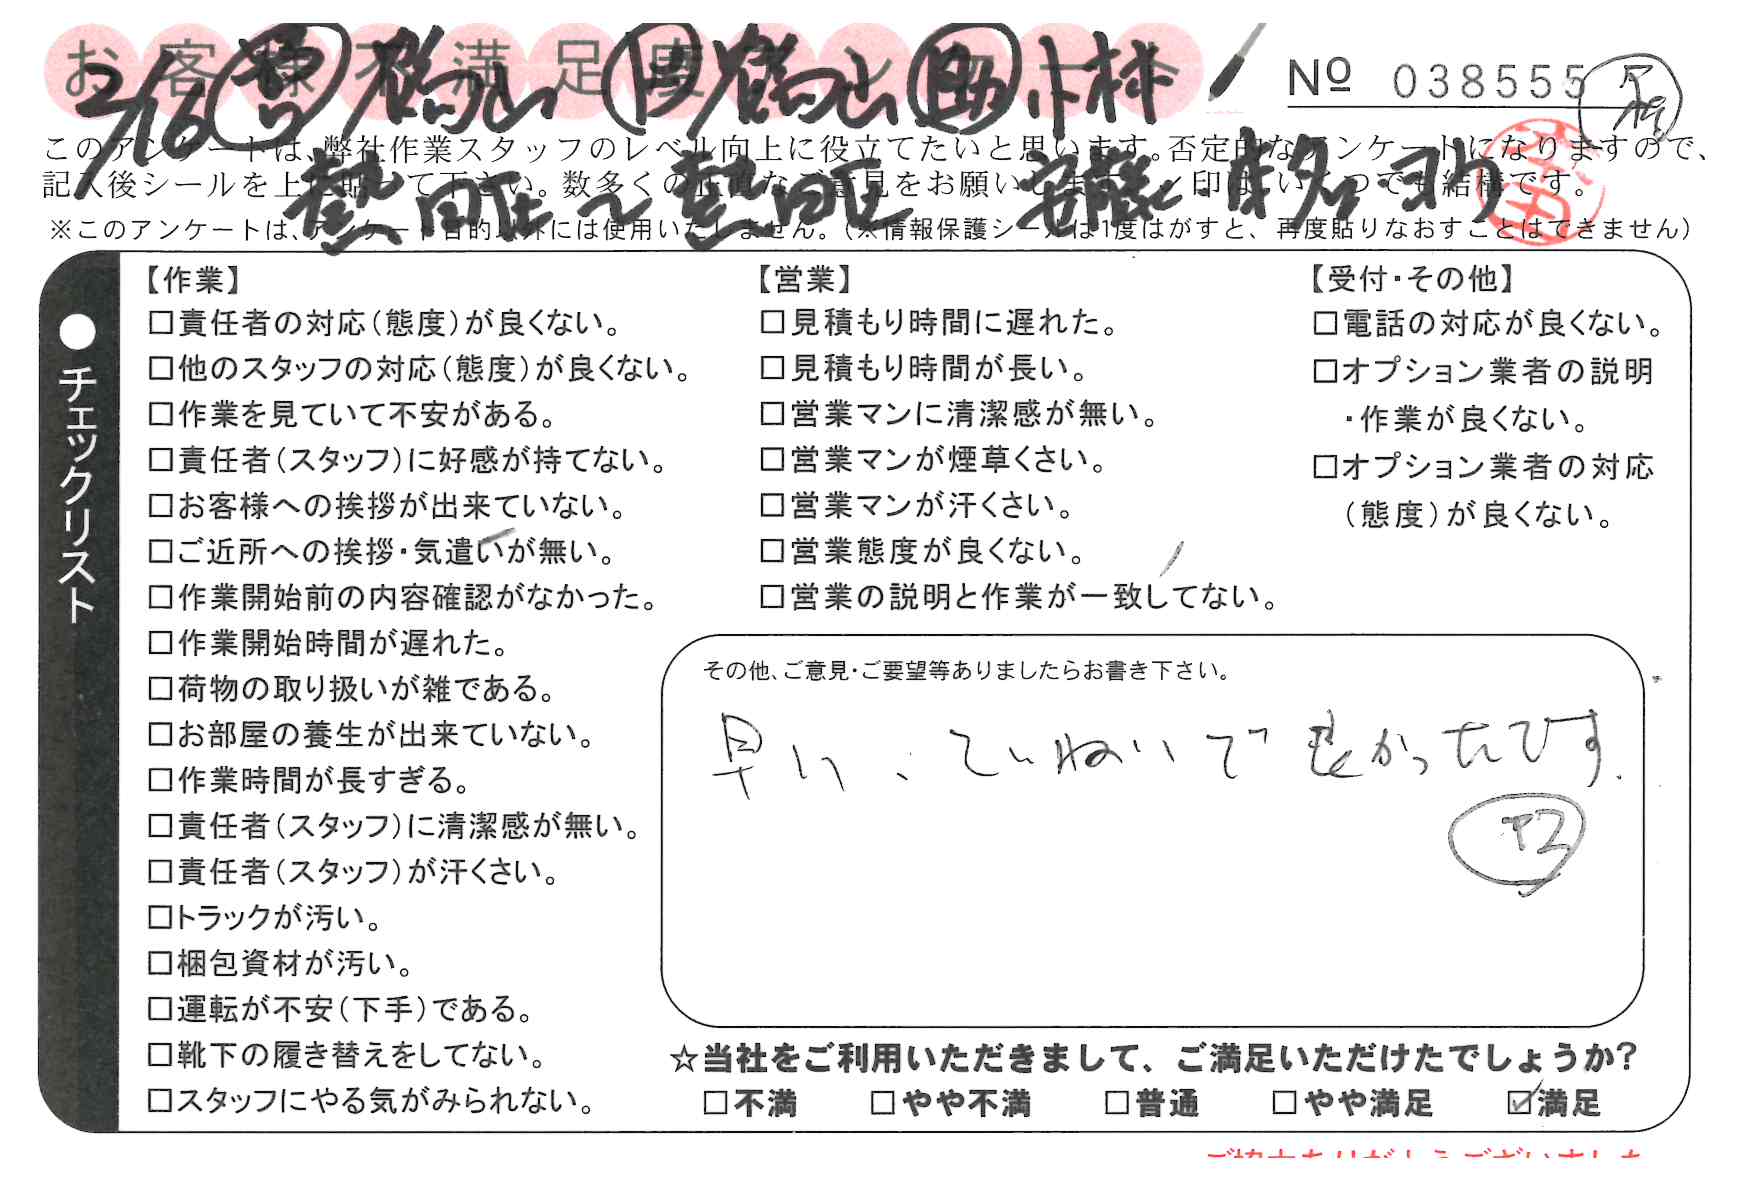 お客様不満足度アンケート
2/16 営 鶴山 鶴山 助 小林
No 038555
このアンケートは、弊社作業スタッフのレベル向上に役立てたいと思います。否定的なアンケートになりますので、
記入後シールを上に貼って下さい。数多くの正直なご意見をお願いします。
熱田区〜熱田区
※このアンケートは、アンケート目的以外には使用いたしません。(※情報保護シールは1度はがすと、再度貼りなおすことはできません)
●チェックリスト
【作業】
□責任者の対応(態度)が良くない。
□他のスタッフの対応(態度)が良くない。
□作業を見ていて不安がある。
□責任者(スタッフ)に好感が持てない。
□お客様への挨拶が出来ていない。
□ご近所への挨拶・気遣いが無い。
□作業開始前の内容確認がなかった。
□作業開始時間が遅れた。
□荷物の取り扱いが雑である。
□お部屋の養生が出来ていない。
□作業時間が長すぎる。
□責任者(スタッフ)に清潔感が無い。
□責任者(スタッフ)が汗くさい。
□トラックが汚い。
□梱包資材が汚い。
□運転が不安(下手)である。
□靴下の履き替えをしてない。
□スタッフにやる気がみられない。
【営業】
□見積もり時間に遅れた。
□見積もり時間が長い。
□営業マンに清潔感が無い。
□営業マンが煙草くさい。
□営業マンが汗くさい。
□営業態度が良くない。
□営業の説明と作業が一致してない。
【受付・その他】
□電話の対応が良くない。
□オプション業者の説明
・作業が良くない。
□オプション業者の対応
(態度)が良くない。
その他、ご意見・ご要望等ありましたらお書き下さい。
早い、ていねいで良かったです。
☆当社をご利用いただきまして、ご満足いただけたでしょうか?
□不満 □やや不満 □普通 □やや満足 ☑満足
ご協力ありがとうございました